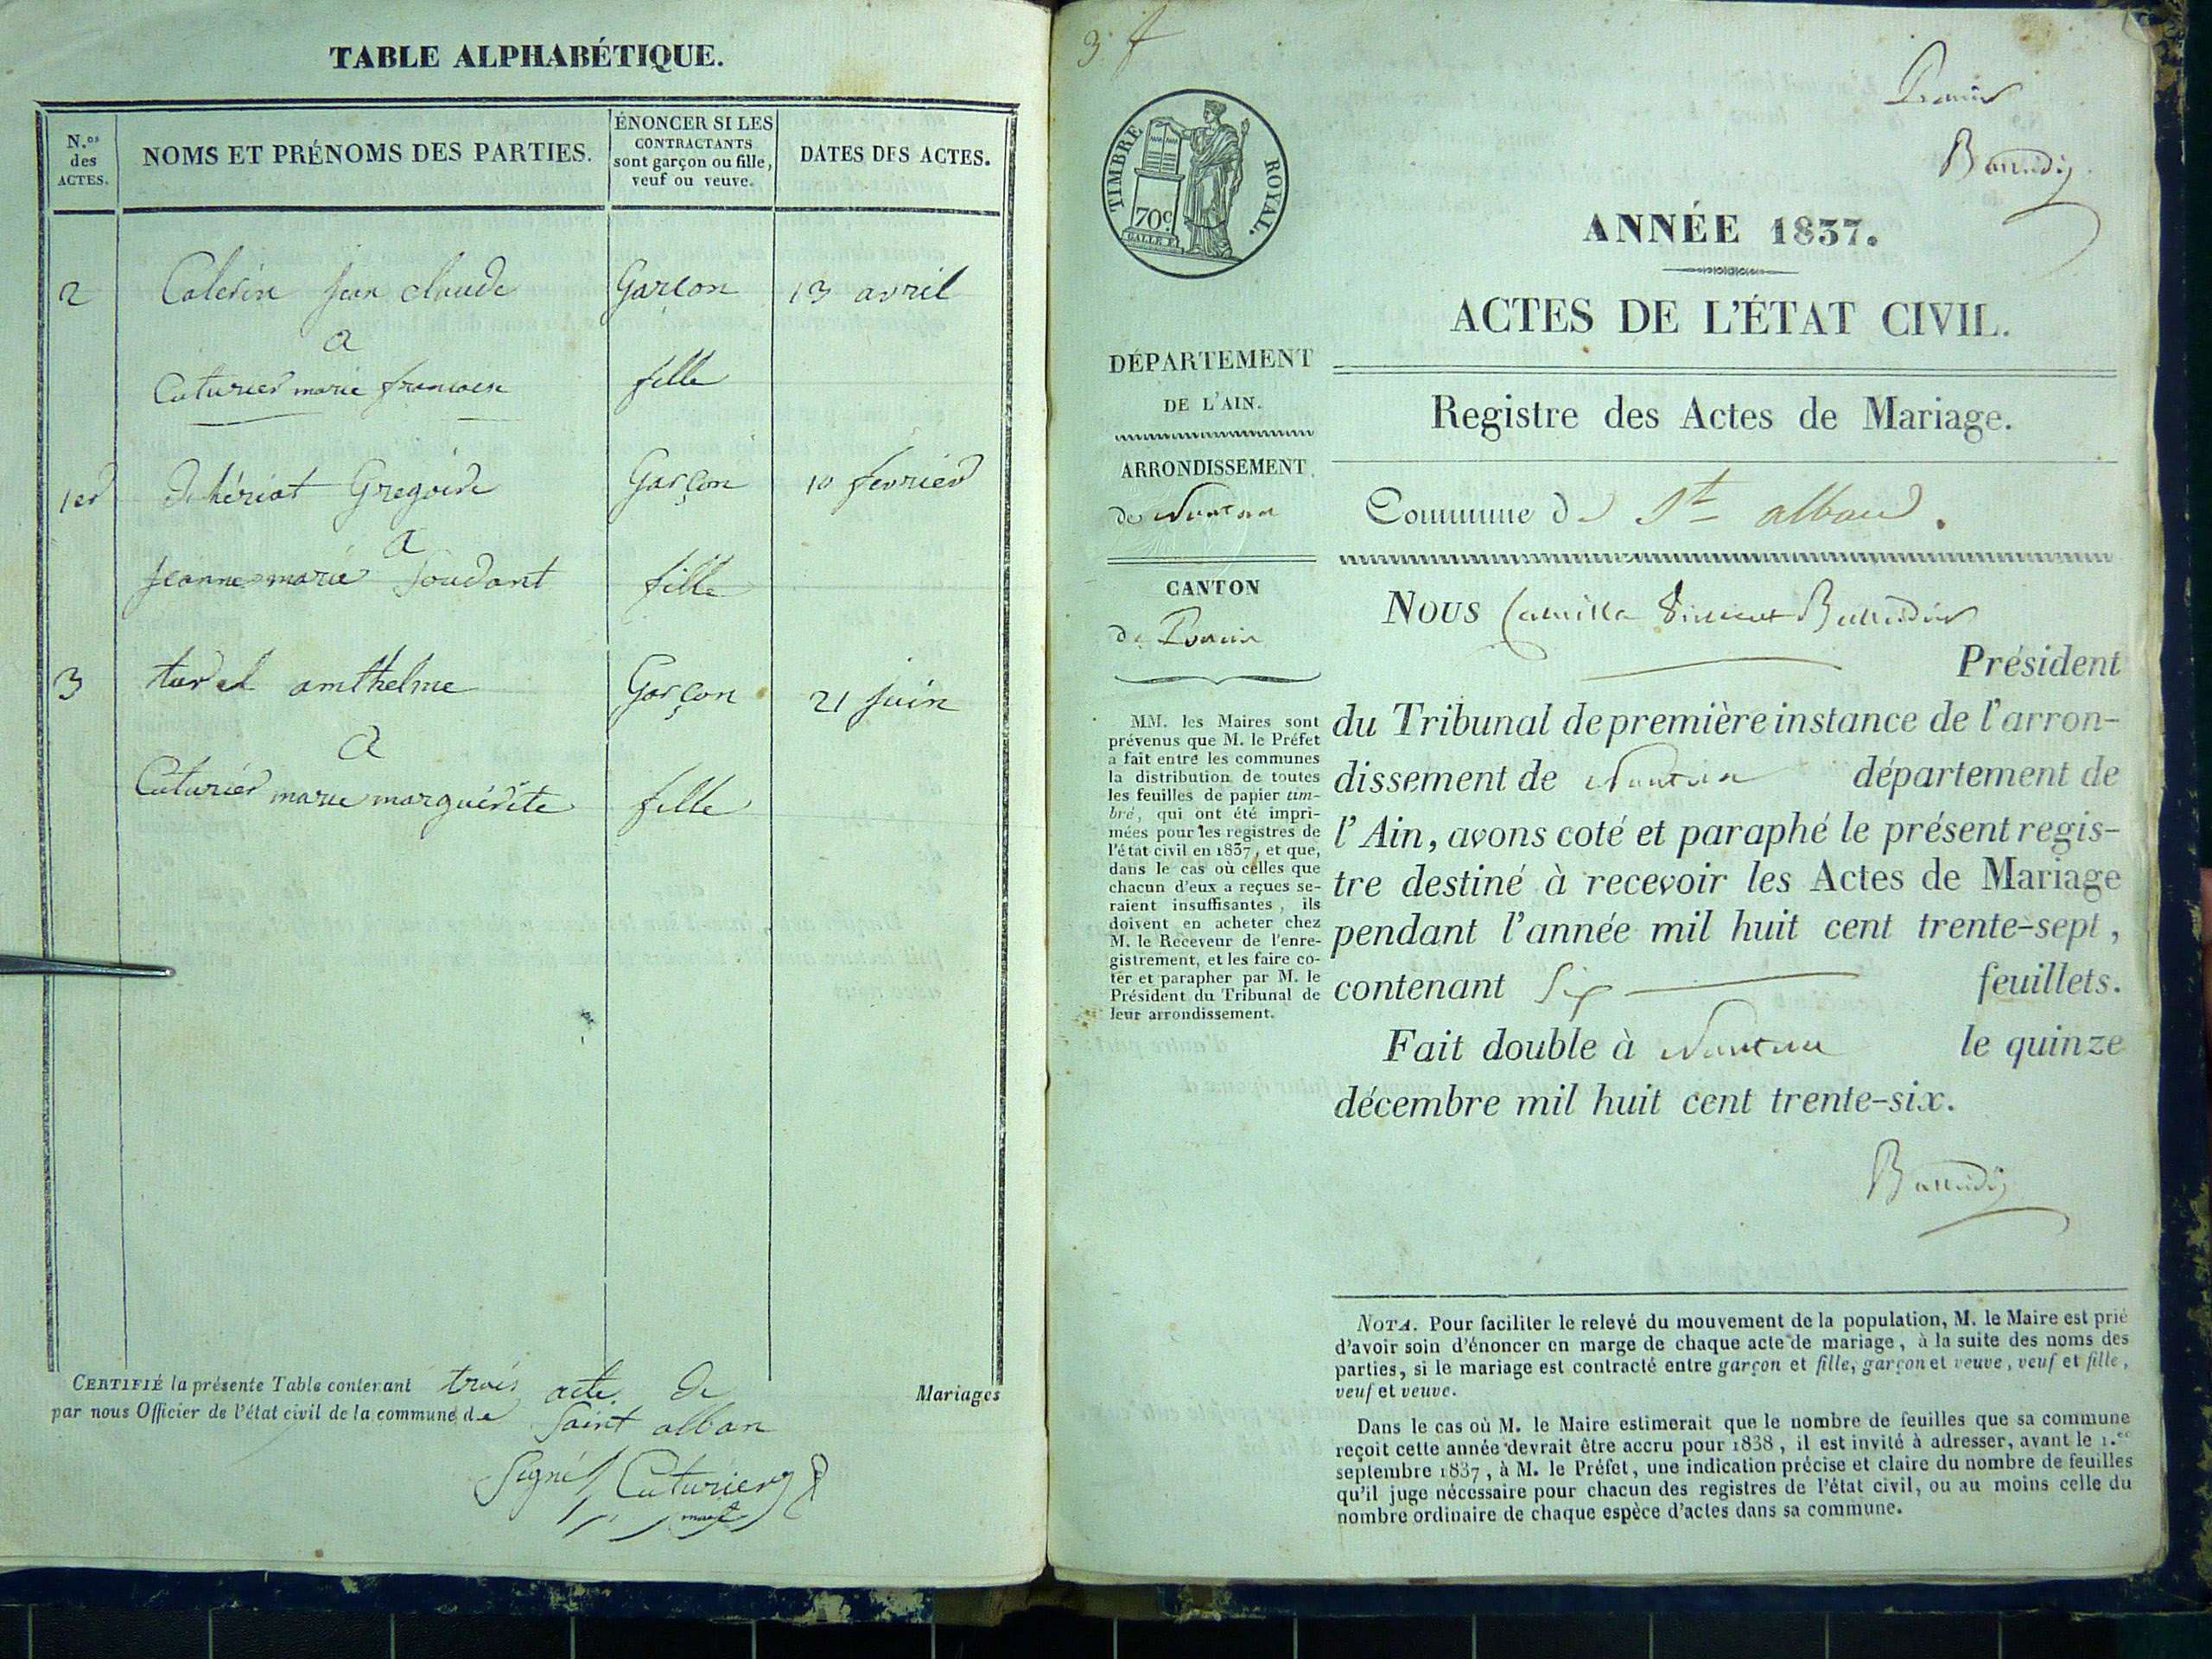 TABLE ALPHABÉTIQUE.
N.os des ACTES.
NOMS ET PRÉNOMS DES PARTIES.
ÉNONCER SI LES
CONTRACTANTS
sont garçon ou fille,
veuf ou veuve.
DATES DES ACTES.
2 Calerin jean claude Garcon 13 avril
a
Cuturier marie francoise fille
1er Grégoire Garçon 10 fevrier
a
jeanne marie Goudant fille
3 anthelme Garçon 21 juin
a
Cuturier marie marguérite fille
CERTIFIÉ la présente Table contenant trois acte de Mariages
par nous Officier de l'état civil de la commune de Saint alban
Signé Cuturier
3 f
TIMBRE ROYAL.
70c
Poncin
ANNÉE 1837.
ACTES DE L'ÉTAT CIVIL.
DÉPARTEMENT
DE L'AIN.
ARRONDISSEMENT
de Nantua
CANTON
de Poncin
MM. les Maires sont
prévenus que M. le Préfet
a fait entre les communes
la distribution de toutes
les feuilles de papier tim-
bré, qui ont été impri-
mées pour les registres de
l'état civil en 1837, et que,
dans le cas où celles que
chacun d'eux a reçues se-
raient insuffisantes, ils
doivent en acheter chez
M. le Receveur de l'enre-
gistrement, et les faire co-
ter et parapher par M. le
Président du Tribunal de
leur arrondissement.
Registre des Actes de Mariage.
Commune de St alban.
Nous Camille Vincent
Président
du Tribunal de première instance de l'arron-
dissement de Nantua département de
l'Ain, avons coté et paraphé le présent regis-
tre destiné à recevoir les Actes de Mariage
pendant l'année mil huit cent trente-sept,
contenant Six feuillets.
Fait double à Nantua le quinze
décembre mil huit cent trente-six.
NOTA. Pour faciliter le relevé du mouvement de la population, M. le Maire est prié
d'avoir soin d'énoncer en marge de chaque acte de mariage, à la suite des noms des
parties, si le mariage est contracté entre garçon et fille, garçon et veuve, veuf et fille,
veuf et veuve.
Dans le cas où M. le Maire estimerait que le nombre de feuilles que sa commune
reçoit cette année devrait être accru pour 1838, il est invité à adresser, avant le 1.er
septembre 1837, à M. le Préfet, une indication précise et claire du nombre de feuilles
qu'il juge nécessaire pour chacun des registres de l'état civil, ou au moins celle du
nombre ordinaire de chaque espèce d'actes dans sa commune.